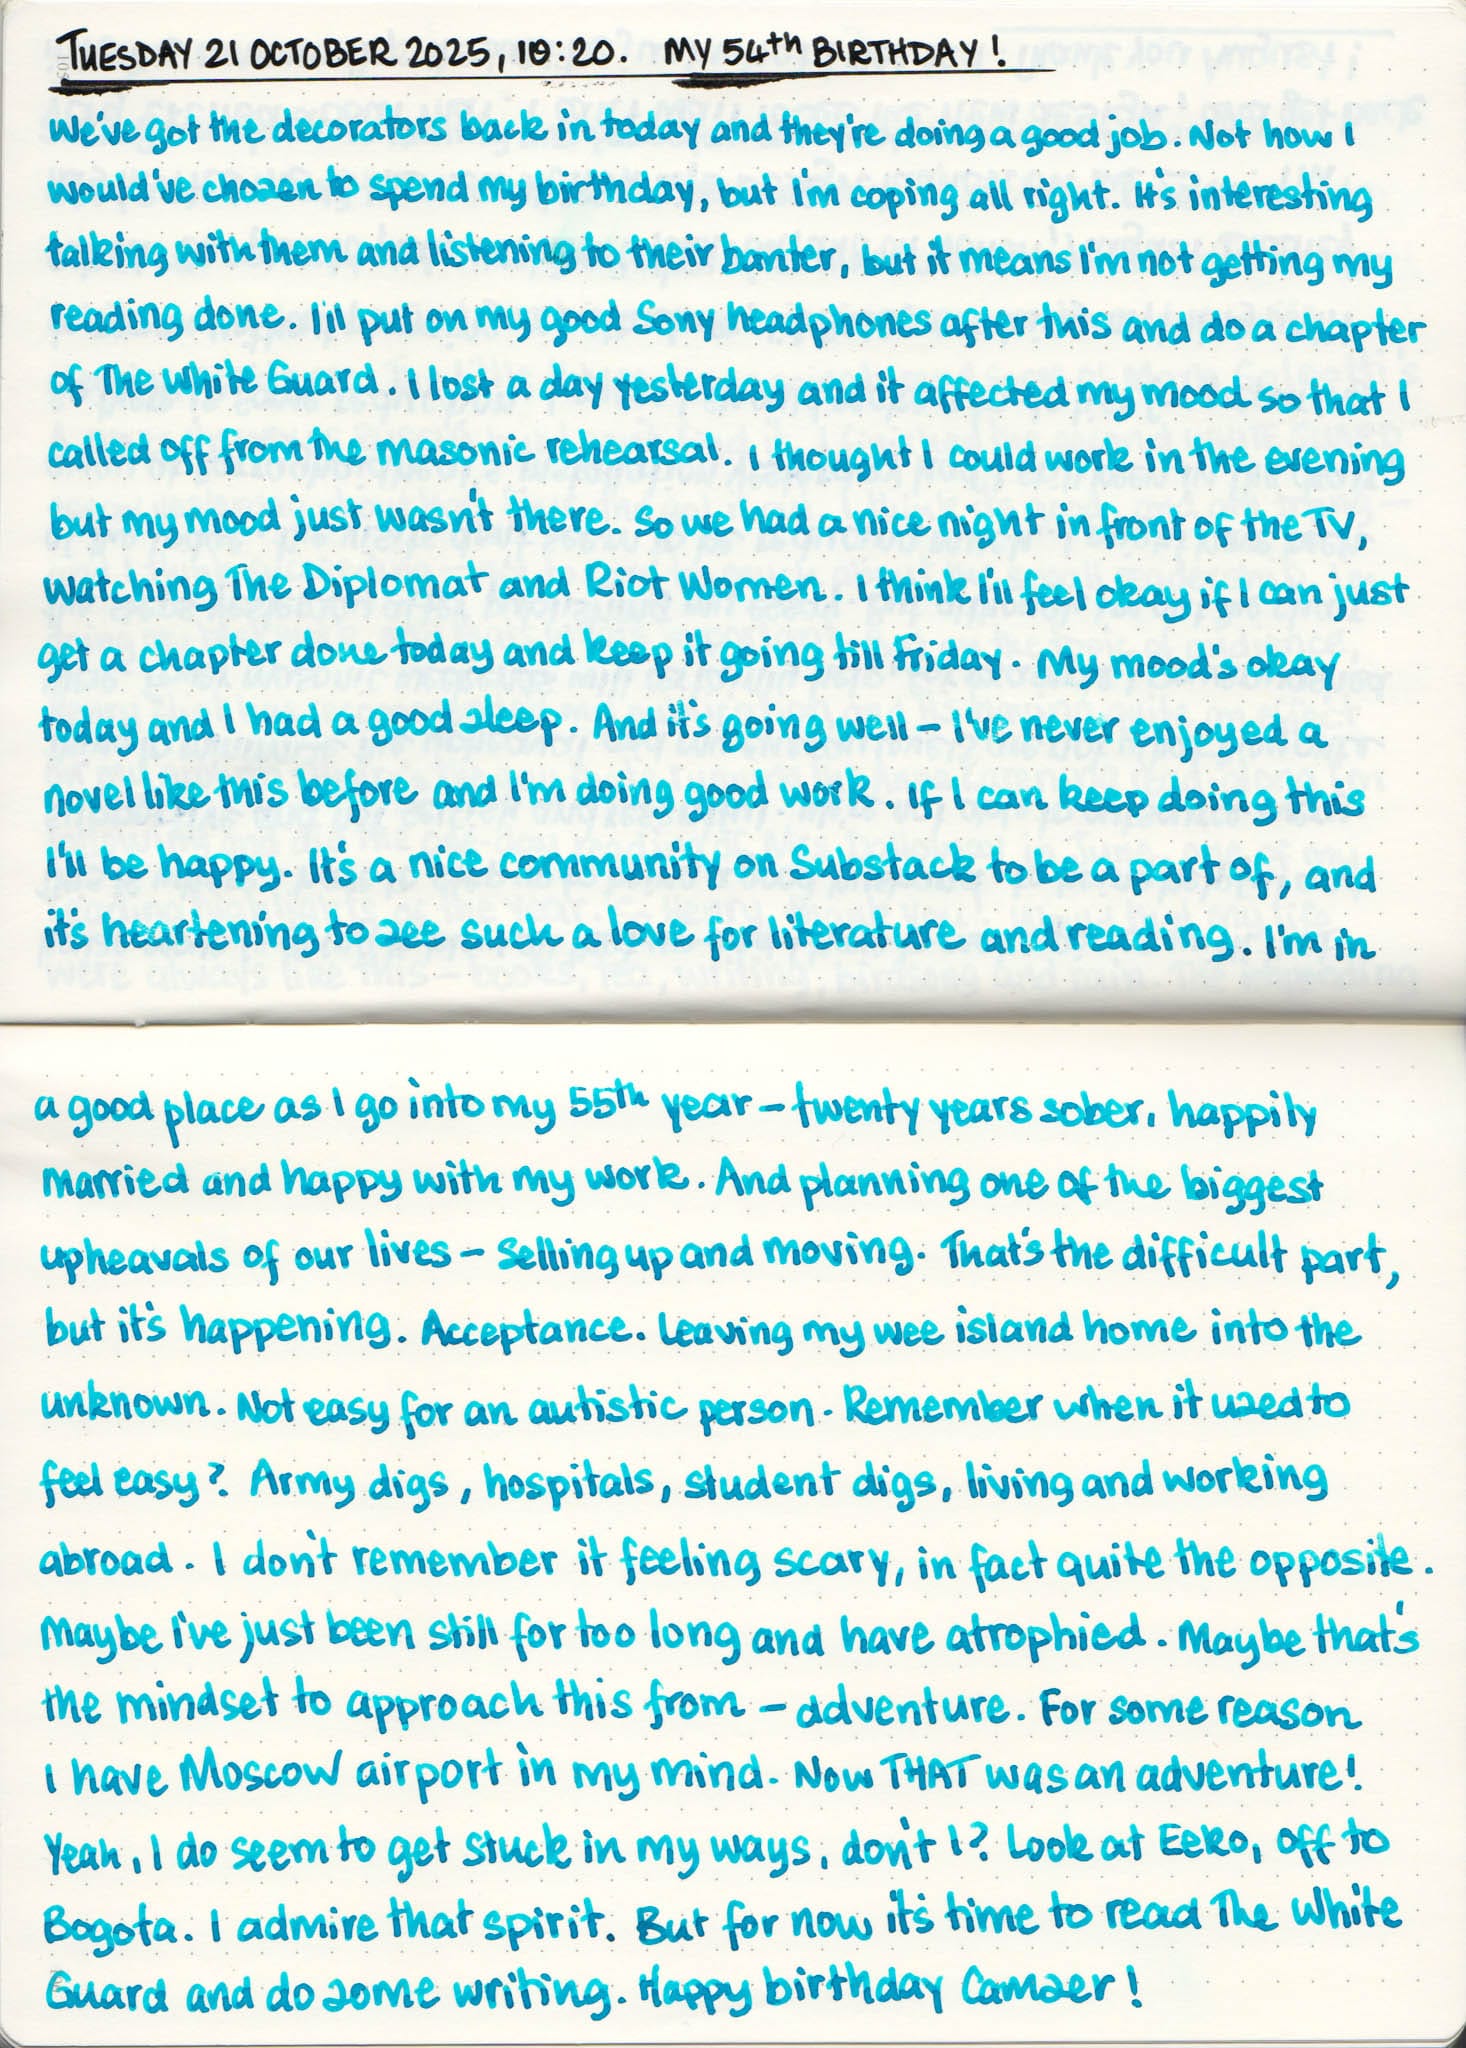 TUESDAY 21 OCTOBER 2025, 10:20. MY 54th BIRTHDAY!
We've got the decorators back in today and they're doing a good job. Not how I
would've chosen to spend my birthday, but I'm coping all right. It's interesting
talking with them and listening to their banter, but it means I'm not getting my
reading done. I'll put on my good Sony headphones after this and do a chapter
of The White Guard. I lost a day yesterday and it affected my mood so that I
called off from the masonic rehearsal. I thought I could work in the evening
but my mood just wasn't there. So we had a nice night in front of the TV,
watching The Diplomat and Riot Women. I think I'll feel okay if I can just
get a chapter done today and keep it going till Friday. My mood's okay
today and I had a good sleep. And it's going well – I've never enjoyed a
novel like this before and I'm doing good work. If I can keep doing this
I'll be happy. It's a nice community on Substack to be a part of, and
it's heartening to see such a love for literature and reading. I'm in
a good place as I go into my 55th year – twenty years sober, happily
married and happy with my work. And planning one of the biggest
upheavals of our lives – selling up and moving. That's the difficult part,
but it's happening. Acceptance. Leaving my wee island home into the
unknown. Not easy for an autistic person. Remember when it used to
feel easy? Army digs, hospitals, student digs, living and working
abroad. I don't remember it feeling scary, in fact quite the opposite.
Maybe I've just been still for too long and have atrophied. Maybe that's
the mindset to approach this from – adventure. For some reason
I have Moscow airport in my mind. Now THAT was an adventure!
Yeah, I do seem to get stuck in my ways, don't I? Look at Eeko, off to
Bogota. I admire that spirit. But for now it's time to read The White
Guard and do some writing. Happy birthday Camser!